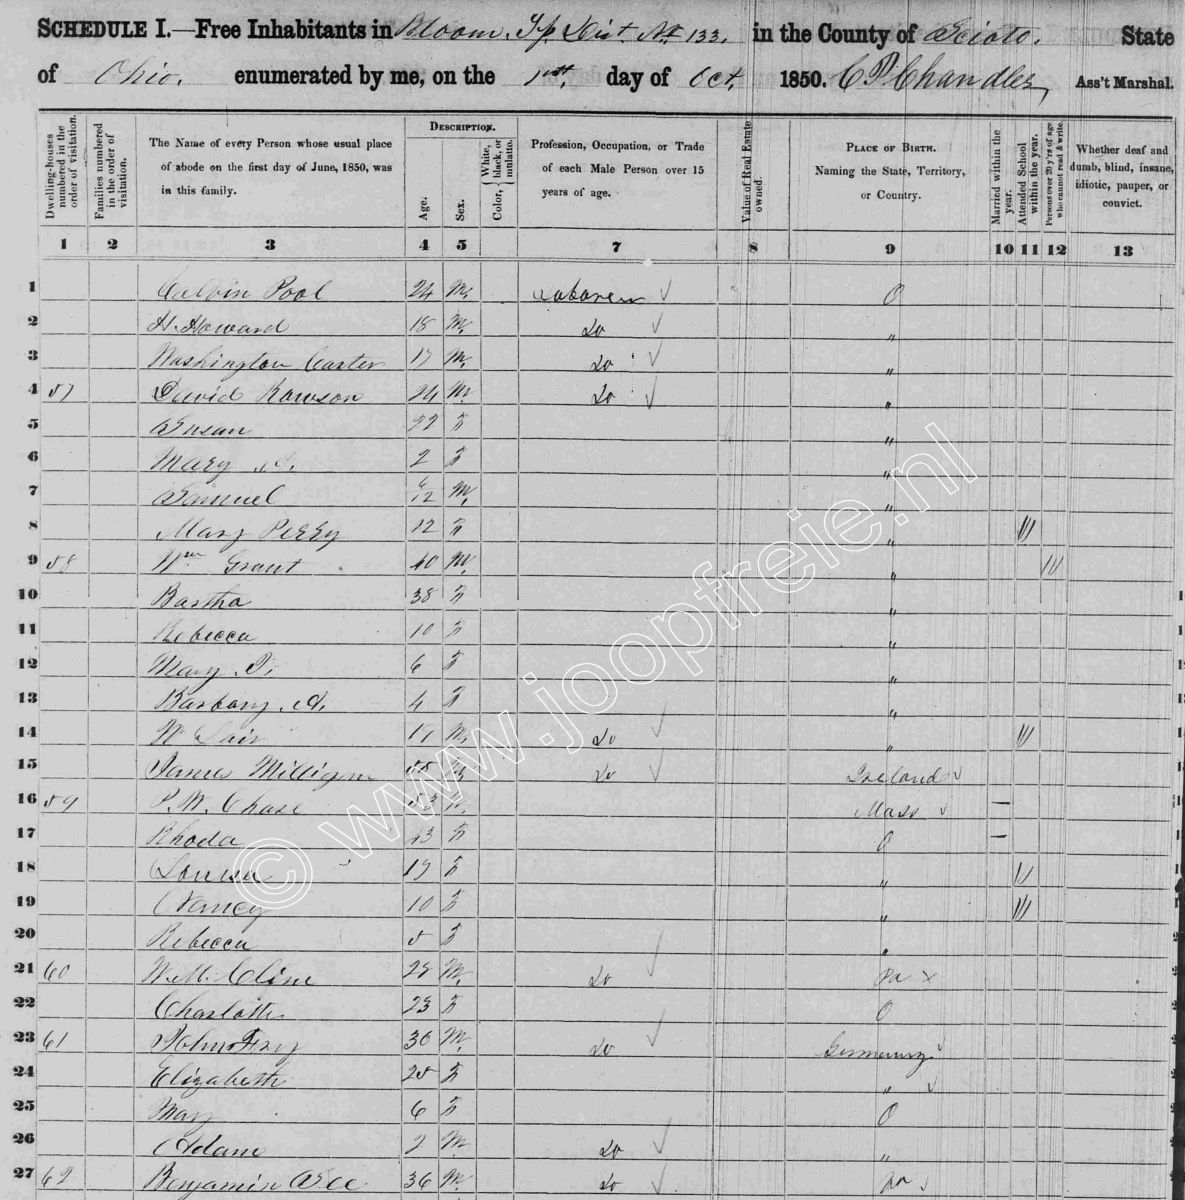 SCHEDULE I.—Free Inhabitants in Bloom Tp Dist. No 133. in the County of Scioto. State
of Ohio. enumerated by me, on the 1st. day of Oct. 1850. C P Chandler, Ass't Marshal.
Dwelling-houses numbered in the order of visitation.
Families numbered in the order of visitation.
The Name of every Person whose usual place of abode on the first day of June, 1850, was in this family.
DESCRIPTION.
Age.
Sex.
Color, White, black, or mulatto.
Profession, Occupation, or Trade of each Male Person over 15 years of age.
Value of Real Estate owned.
PLACE OF BIRTH. Naming the State, Territory, or Country.
Married within the year.
Attended School within the year.
Persons over 20 y'rs of age who cannot read & write.
Whether deaf and dumb, blind, insane, idiotic, pauper, or convict.
1 2 3 4 5 7 8 9 10 11 12 13
1 Calvin Pool 24 M. Laborer ✓ O
2 H. Howard 18 M. Do ✓ "
3 Washington Carter 17 M. Do ✓ "
4 57 David Rawson 24 M. Do ✓ "
5 Susan 22 F "
6 Mary A. 2 F "
7 Samuel 6/12 M. "
8 Mary Perry 12 F " ///
9 58 Wm Grant 40 M. " ///
10 Bartha 38 F "
11 Rebecca 10 F "
12 Mary J. 6 F "
13 Barbary A. 4 F "
14 W Lair 17 M. Do ✓ " ///
15 James Milligan 55 Do ✓ Ireland ✓
16 59 P. W. Chase Mass ✓ —
17 Rhoda 43 F O —
18 Louisa 17 F "
19 Nancy 10 F " ///
20 Rebecca 5 F "
21 60 W. M. Cline 28 M. Do ✓ Pa x
22 Charlotte 23 F O
23 61 John Fry 36 M. Do ✓ Germany ✓
24 Elizabeth 25 F " ✓
25 May 6 F O
26 Adam 2 M. Do ✓ "
27 62 Benjamin 36 M. Do ✓ Pa ✓
© www.joopfreie.nl